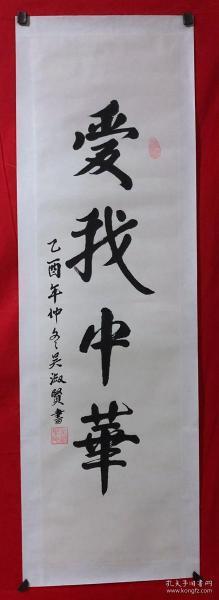 愛我中華
乙酉年仲冬吴淑賢書
孔夫子旧书网
www.kongfz.com